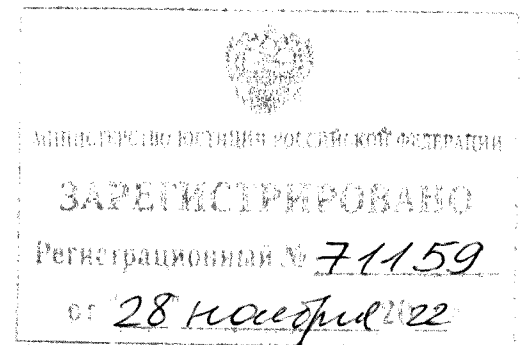 МИНИСТЕРСТВО ЮСТИЦИИ РОССИЙСКОЙ ФЕДЕРАЦИИ
ЗАРЕГИСТРИРОВАНО
Регистрационный № 71159
от "28" ноября 2022